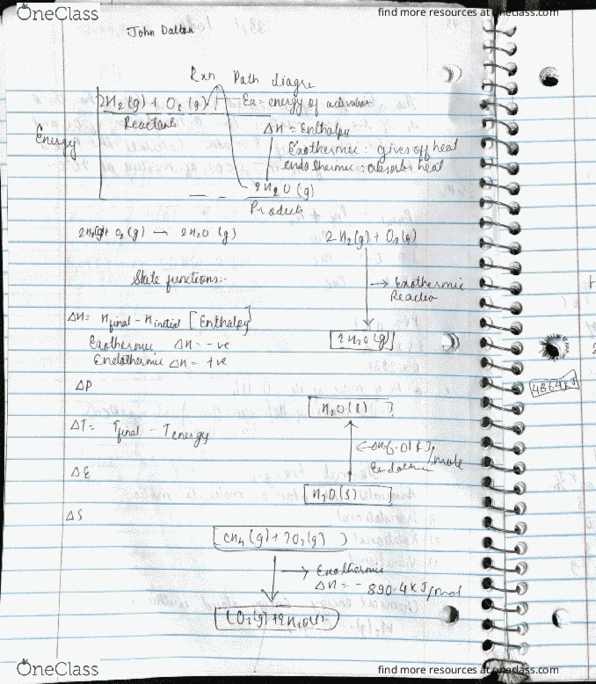 OneClass
find more resources at oneclass.com
John Dalton
Rxn Path diagra
2H₂(g) + O₂(g)
Ea = energy of activation
Reactants
ΔH = Enthalpy
Energy
Exothermic : gives off heat
endothermic : absorbs heat
2H₂O (g)
Products
2H₂(g) + O₂(g) → 2H₂O (g)
2H₂(g) + O₂(g)
State functions:-
→ Exothermic
Reaction
ΔH = Hfinal - Hinitial [Enthalpy]
Exothermic ΔH = -ve
2H₂O(g)
Endothermic ΔH = +ve
ΔP
H₂O(l)
ΔT = Tfinal - Tenergy
6.01 kJ/mole
Endother
ΔE
H₂O(s)
ΔS
CH₄(g) + 2O₂(g)
→ Exothermic
ΔH = - 890.4 kJ/mol
CO₂(g) + 2H₂O(l)
OneClass
find more resources at oneclass.com